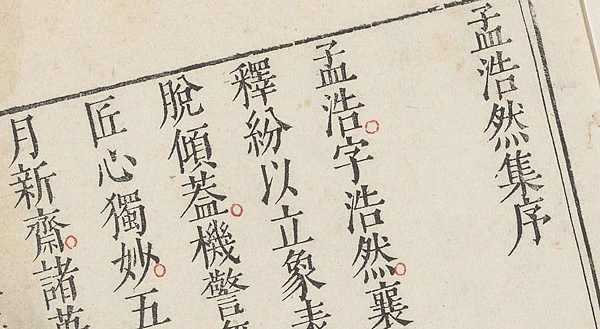 孟浩然集序
孟浩字浩然襄
釋紛以立象表
脫傾蓋機警
匠心獨妙五
月新齋諸英